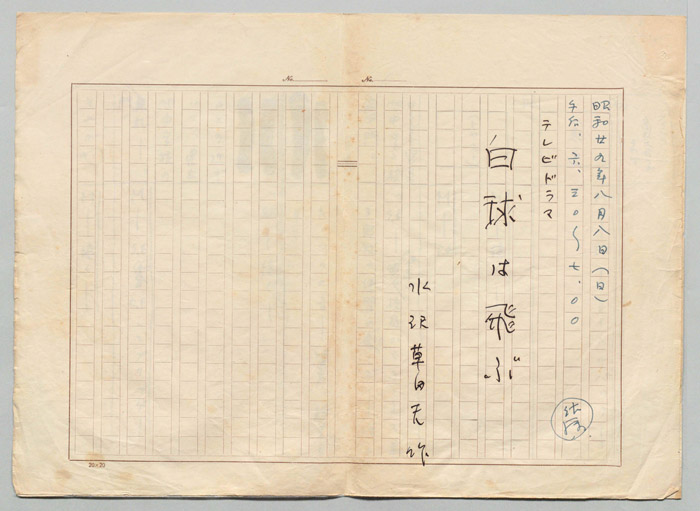 昭和廿九年八月八日(日)
午后、六、三〇〜七、〇〇
テレビドラマ
白球は飛ぶ
水沢草田夫作
No.
No.
20×20